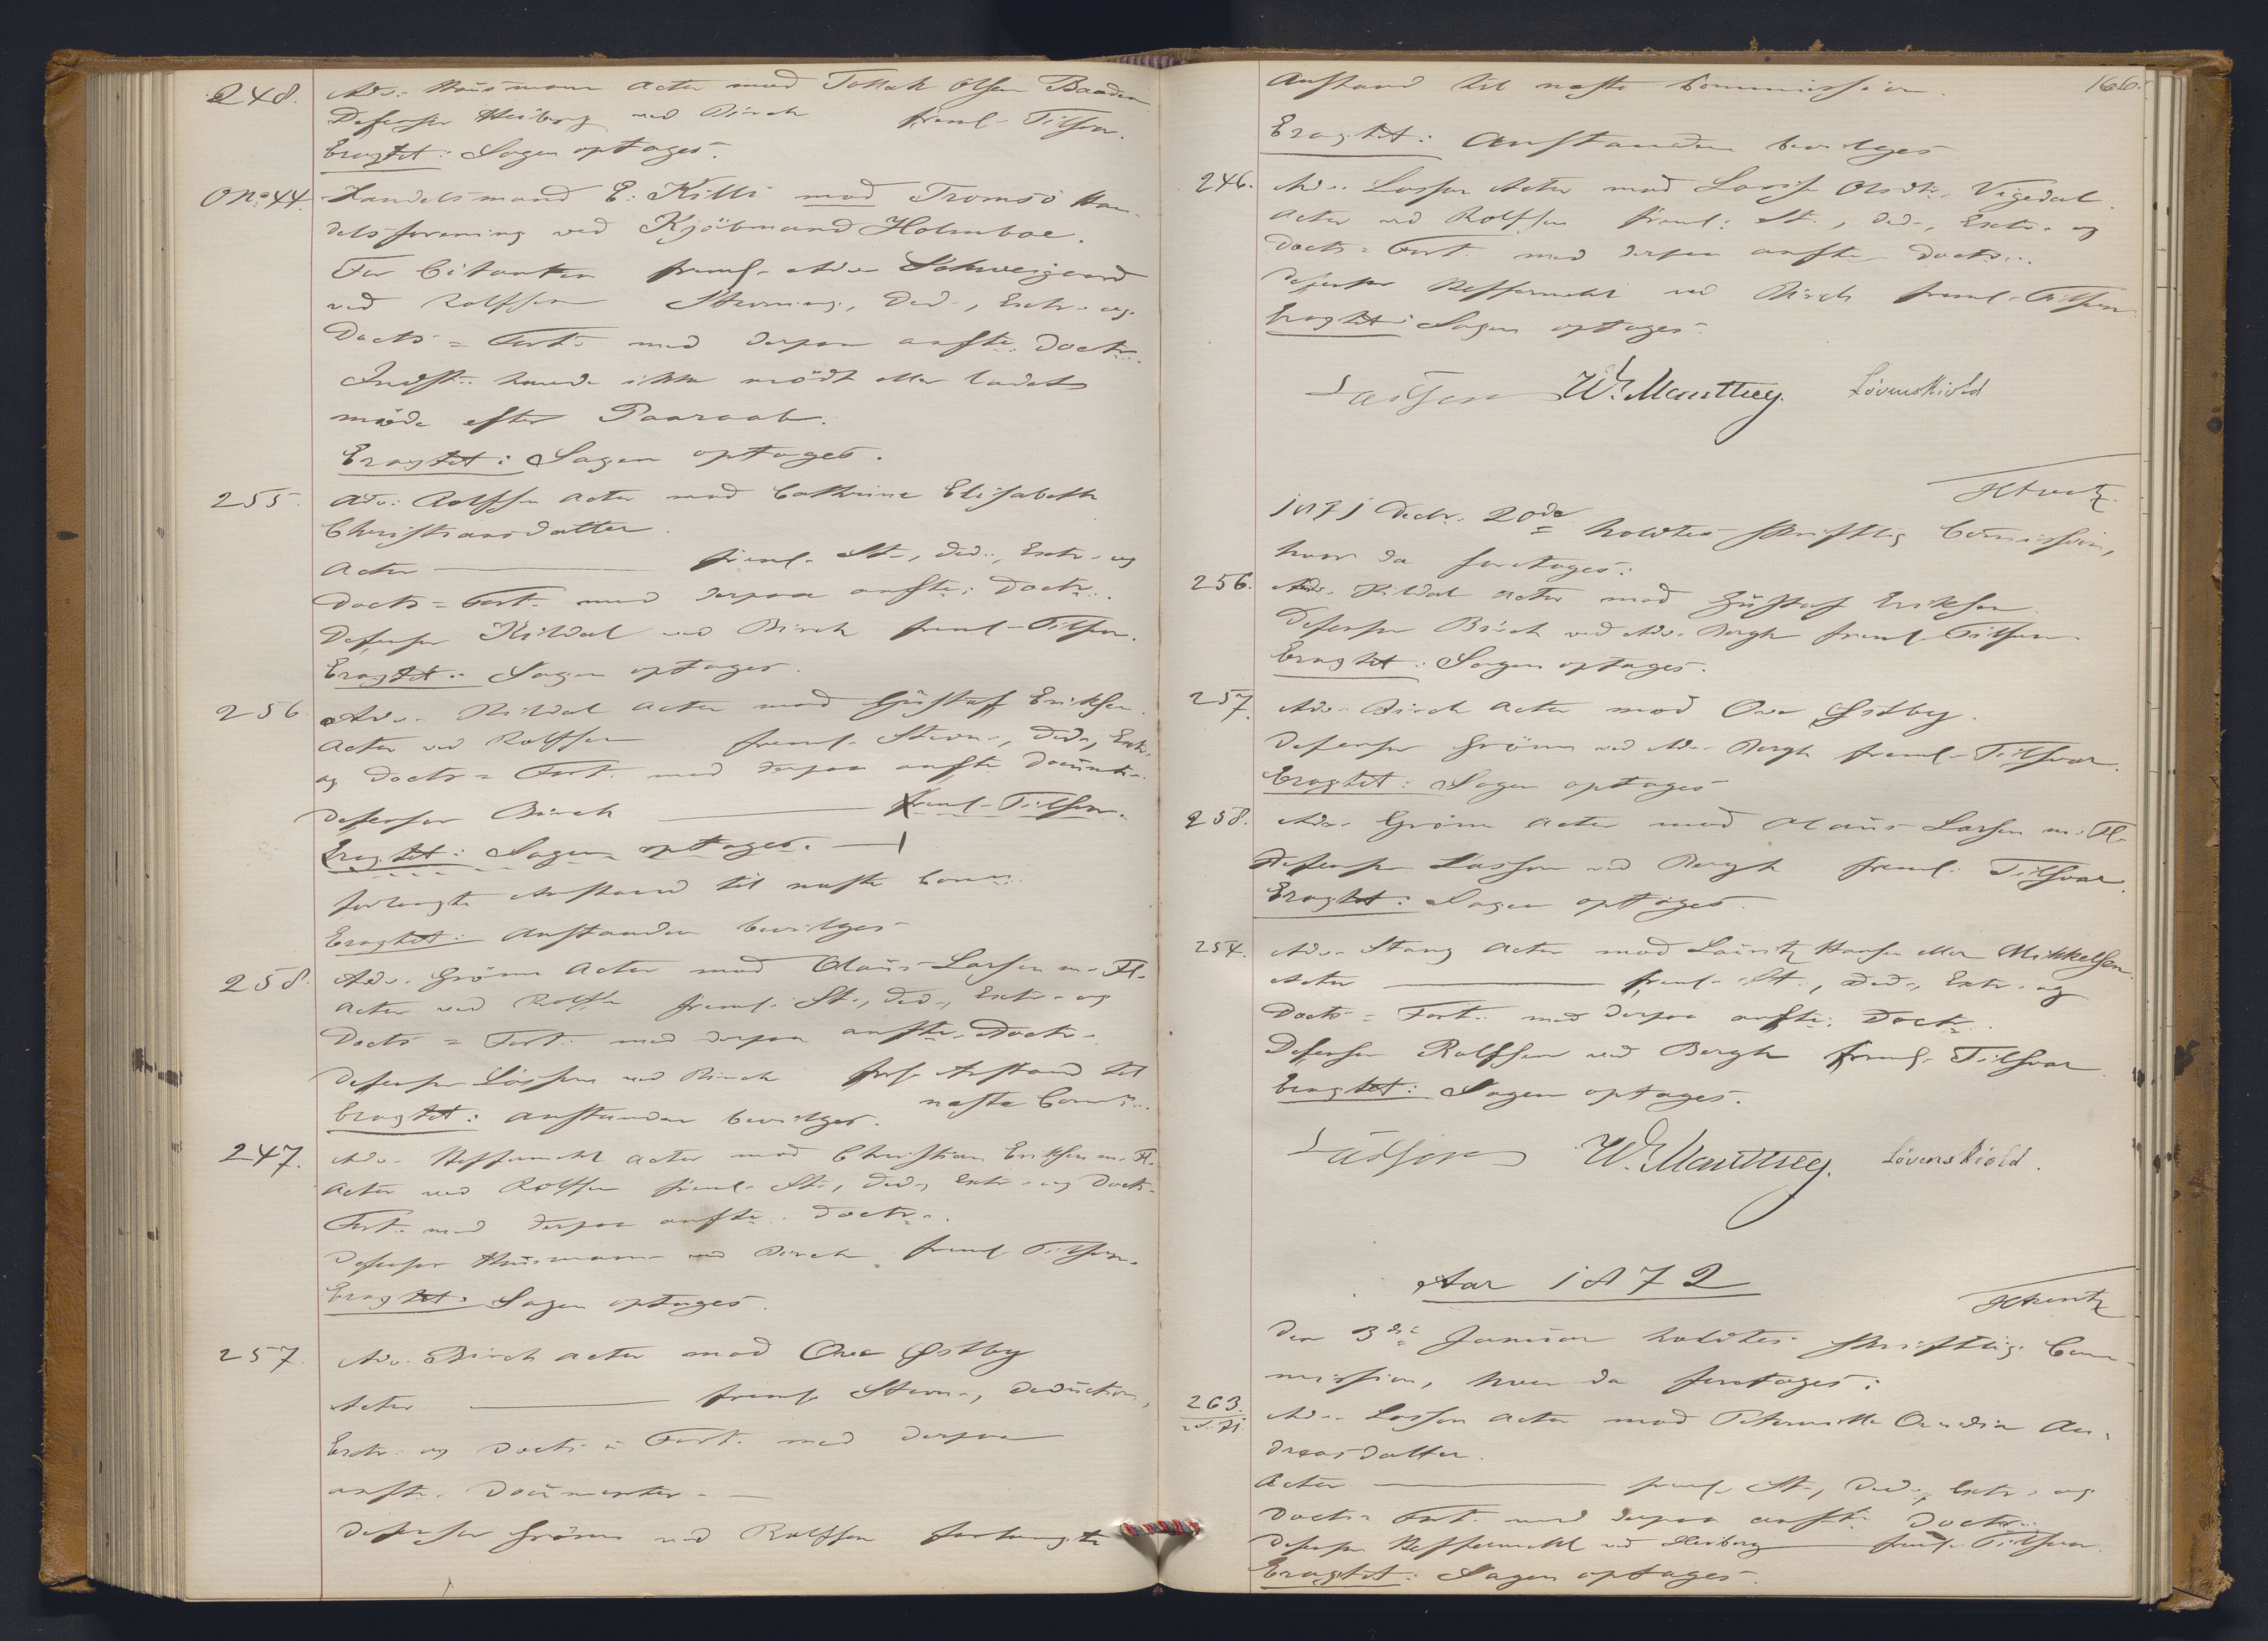 248. Adv. Husmann Actor mod Tollak Olsen Baaden
Defensor Heiberg ved Birch freml. Tilsvar.
Eragtet: Sagen optages.
O No: 44. Handelsmand E. Killi mod Tromsö Han-
delsforening ved Kjöbmand Holmboe.
For Citanten freml. Adv. Schweigaard
ved Rolfsen Stevning, Ded., Extr. og
Docts = Fort. med derpaa anfte: Doctr.
Indst. havde ikke mödt eller ladet
möde efter Paaraab.
Eragtet: Sagen optages.
255. Adv: Rolfsen Actor mod Cathrine Elisabeth
Christiansdatter.
Actor freml. St., Ded., Extr. og
Docts = Fort. med derpaa anfte: Doctr.
Defensor Kildal ved Birch freml. Tilsvar.
Eragtet: Sagen optages.
256. Adv. Kildal Actor mod Gustaf Eriksen.
Actor ved Rolfsen freml. Stevn., Ded., Extr.
og Doctr = Fort. med derpaa anfte Documtr.
Defensor Birch freml. Tilsvar.
Eragtet: Sagen optages.
forlangte Anstand til næste Comm.
Eragtet: Anstanden bevilges
258. Adv. Grönn Actor mod Olaus Larsen m. Fl.
Actor ved Rolfsen freml. St., Ded., Extr. og
Docts = Fort. med derpaa anfte. Doctr.
Defensor Lasson ved Birch forl. Anstand til
næste Comm.
Eragtet: Anstanden bevilges.
247. Adv. Reffermehl Actor mod Christian Eriksen m. Fl.
Actor ved Rolfsen freml. St., Ded., Extr. og Docts-
Fort. med derpaa anfte. Doctr.
Defensor Husmann ved Birch freml. Tilsvar.
Eragtet: Sagen optages.
257. Adv. Birch Actor mod Ove Østby
Actor freml. Stevn., Deduction,
Extr. og Docts = Fort. med derpaa
anfte. Documenter.
Defensor Grönn ved Rolfsen forlangte
166.
Anstand til næste Commission.
Eragtet: Anstanden bevilges
246. Adv. Lasson Actor mod Lovise Olsdtr. Vigedal.
Actor ved Rolfsen freml. St., Ded., Extr. og
Docts = Fort. med derpaa anfte Doctr.
Defensor Reffermehl ved Birch freml. Tilsvar.
Eragtet: Sagen optages.
Lasson W. Manthey. Lövenskiold
1871 Decbr. 20de holdtes skriftlig Commission,
hvor da foretoges:
256. Adv. Kildal Actor mod Gustaf Eriksen.
Defensor Birch ved Adv. Bergh freml. Tilsvar.
Eragtet: Sagen optages.
257. Adv. Birch Actor mod Ove Østby.
Defensor Grönn ved Adv. Bergh freml. Tilsvar.
Eragtet: Sagen optages
258. Adv. Grönn Actor mod Olaus Larsen m. Fl.
Defensor Lasson ved Bergh freml. Tilsvar.
Eragtet: Sagen optages.
254. Adv. Stang Actor mod Lauritz Hansen eller Mikkelsen.
Actor freml. St., Ded., Extr. og
Docts = Fort. med derpaa anfte: Doctr.
Defensor Rolfsen ved Bergh freml. Tilsvar.
Eragtet: Sagen optages.
Lasson W. Manthey. Lövenskiold.
Aar 1872
Den 3die Januar holdtes skriftlig Com-
mission, hvor da foretoges:
263. Adv. Lasson Actor mod Peternille An-
71.
dreasdatter.
Actor freml. St., Ded., Extr. og
Docts = Fort. med derpaa anfte. Doctr.
Defensor Reffermehl ved Heiberg freml. Tilsvar.
Eragtet: Sagen optages.